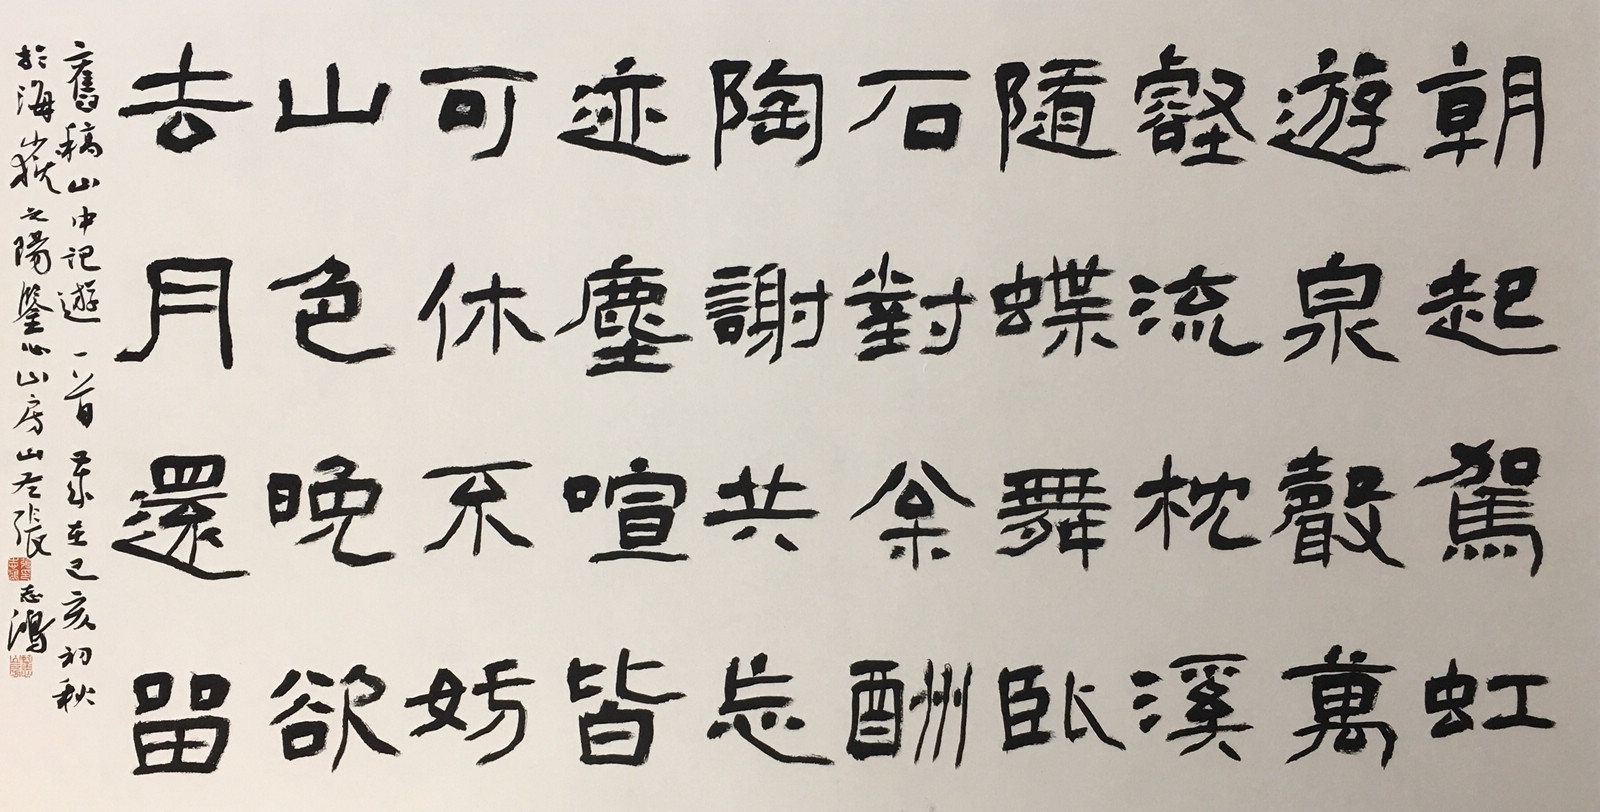 朝起駕虹
遊泉聲萬
壑流枕溪
隨蝶舞臥
石對枀酬
陶謝共忘
迹塵喧皆
可休不妨
山色晚欲
去月還留
舊稿山中記遊一首歲在己亥初秋
於海嶽之陽鑒心山房山左張志鴻